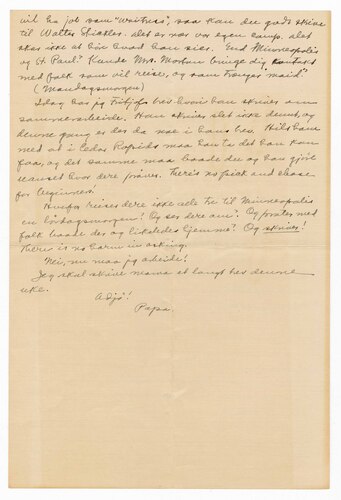 vil ha job som "waitress", saa kan du godt skrive
til Walter Stickles. Det er nær vor egen camp. Det
skar ikke at hør hvad han sier. End Minneapolis
og St. Paul? Kunde Mrs. Morbin bringe dig i contact
med folk som vil reise, og som trænger maid?
(Mandagsmorgen)
Idag har jeg Fritjofs brev hvori han skriver om
sommerarbeide. Han skriver slet ikke dumt, og
denne gang er der da noe i hans brev. Hils ham
med at i Cedar Rapids maa han ta det han kan
faa, og det samme maa baade du og han gjøre
uanset hvor dere prøver. There's no pick and choose
for beginners.
Hvorfor reiser dere ikke ade to til Minneapolis
en lørdagsmorgen? Og ser dere om? Og prater med
folk baade der og likeledes hjemme? Og skriver?
There is no harm in asking.
Nei, nu maa jeg arbeide!
Jeg skal skrive mama et langt brev denne
uke.
Adjø!
Papa.